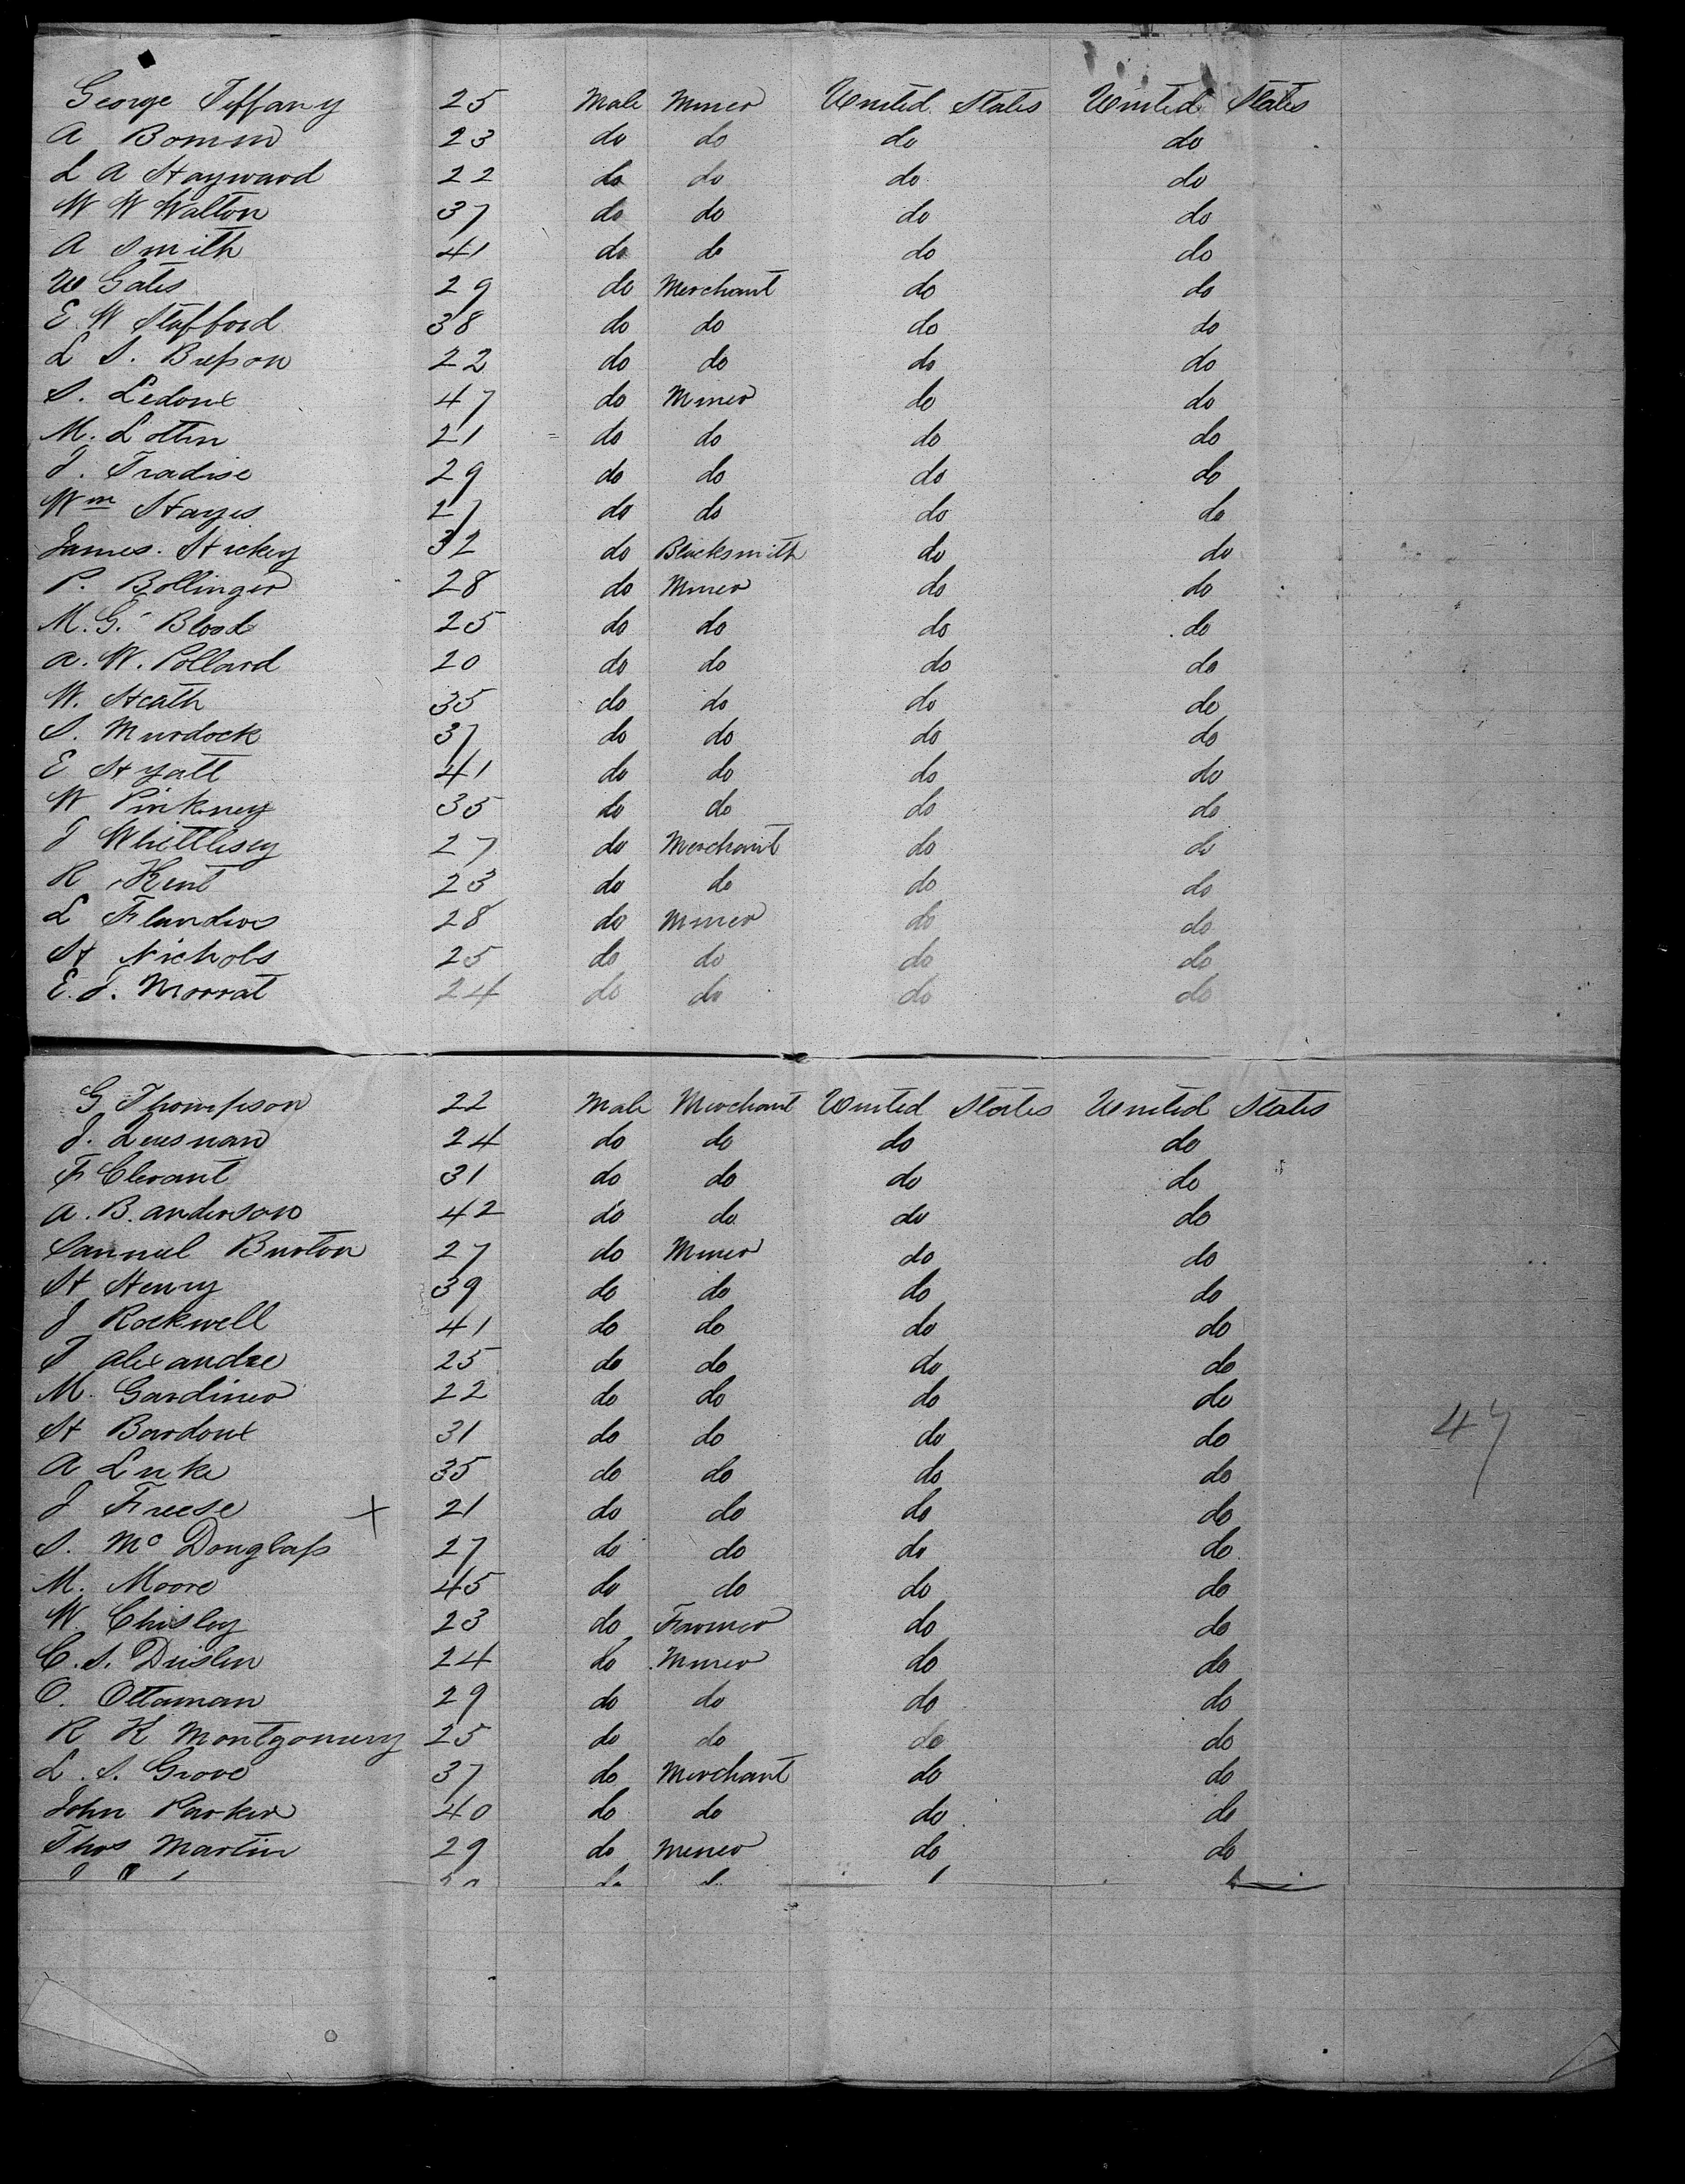 George Tiffany 25 Male Miner United States United States
A Bomm 23 do do do do
L A Hayward 22 do do do do
W W Walton 37 do do do do
A Smith 41 do do do do
W Gates 29 do Merchant do do
E. W Stafford 38 do do do do
L S. Bresson 22 do do do do
S. Ledoux 47 do Miner do do
M. Lottin 21 do do do do
J. Fradise 29 do do do do
Wm Hayes 27 do do do do
James. Hickey 32 do Blacksmith do do
P. Bollinger 28 do Miner do do
M. G. Blood 25 do do do do
A. W. Pollard 20 do do do do
W. Heath 35 do do do do
S. Murdock 37 do do do do
E Hyatt 41 do do do do
W Pinkney 35 do do do do
J Whittlesey 27 do Merchant do do
R Kent 23 do do do do
L Flanders 28 do Miner do do
H Nichols 25 do do do do
E. J. Morrat 24 do do do do
G Thompson 22 Male Merchant United States United States
J. 24 do do do do
F Clerant 31 do do do do
A. B. Anderson 42 do do do do
Samuel Burton 27 do Miner do do
H Henry 39 do do do do
J Rockwell 41 do do do do
T Alexandre 25 do do do do
M. Gardiner 22 do do do do
H Bardoux 31 do do do do
47
A Luke 35 do do do do
J Freese x 21 do do do do
S. Mc Douglass 27 do do do do
M. Moore 45 do do do do
W. Chisley 23 do Farmer do do
C. S. Dieslin 24 do Miner do do
O. Ottaman 29 do do do do
R K Montgomery 25 do do do do
L. S. Grove 37 do Merchant do do
John Parker 40 do do do do
Thos Martin 29 do Miner do do